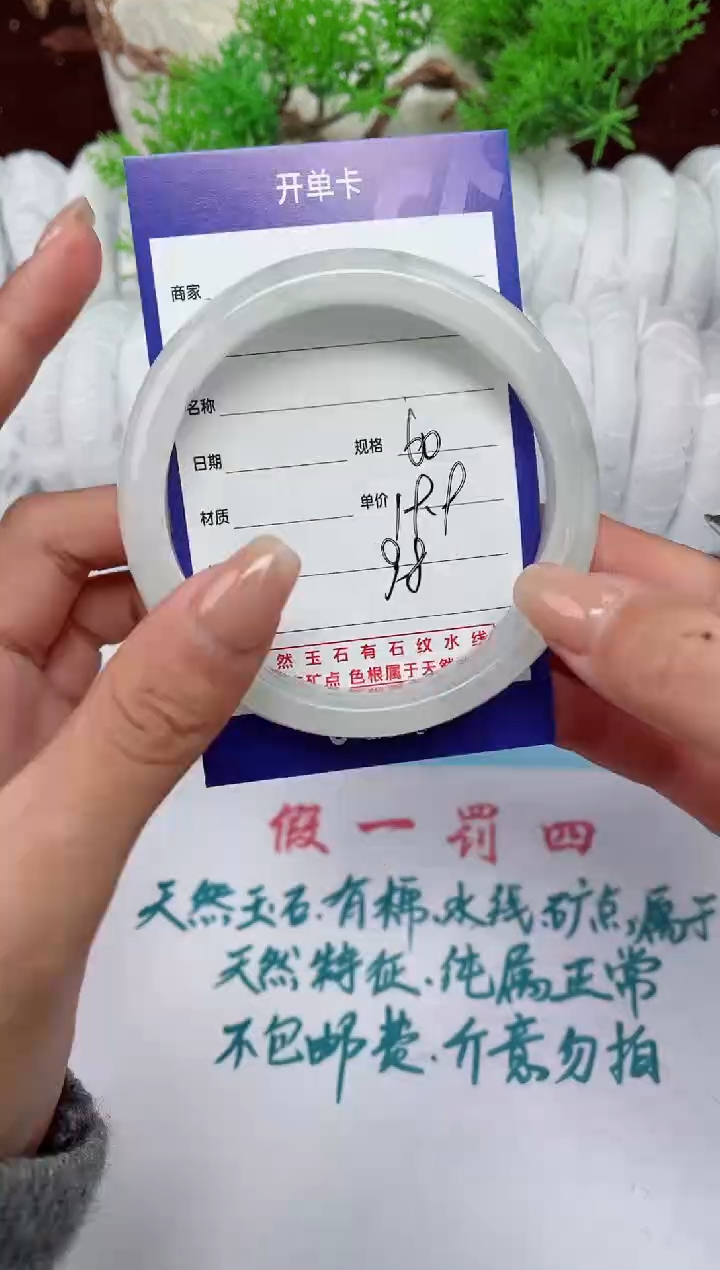 开单卡
商家
名称
日期 规格 60
材质 单价
98
然玉石有石纹水线
矿点 色根属于天然
假一罚四
天然玉石.有棉.水线.矿点,属于
天然特征.纯属正常
不包邮费.介意勿拍